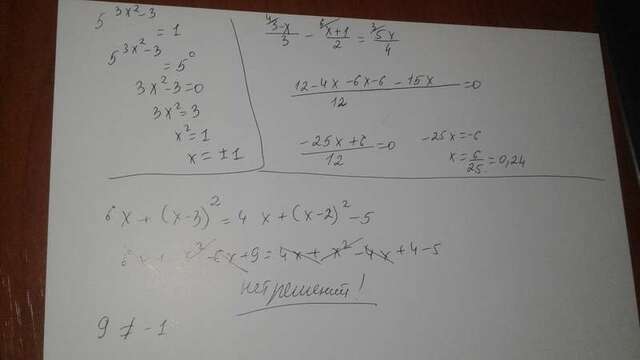 5^{3x²-3} = 1
5^{3x²-3} = 5^0
3x²-3=0
3x²=3
x²=1
x=±1
⁴⁄3-x/3 - ⁶⁄x+1/2 = ³⁄5x/4
12-4x-6x-6-15x/12 =0
-25x+6/12 =0
-25x=-6
x=6/25=0,24
6x+(x-3)²=4x+(x-2)²-5
6x+x²-6x+9=4x+x²-4x+4-5
нет решений!
9≠-1